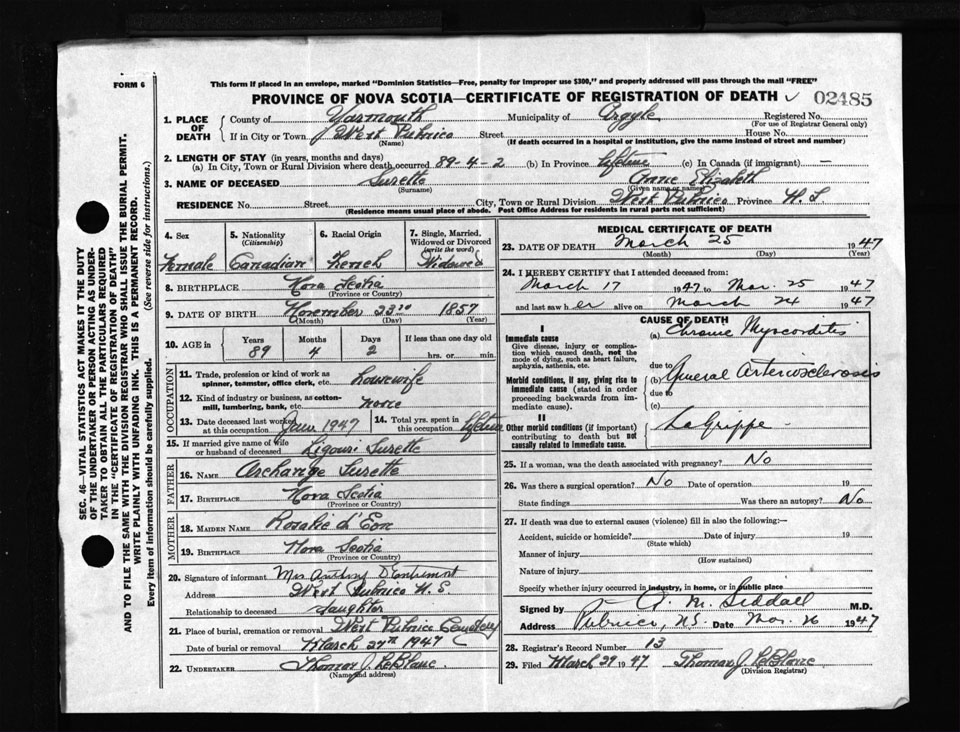 FORM 6
This form if placed in an envelope, marked "Dominion Statistics—Free, penalty for improper use $300," and properly addressed will pass through the mail "FREE"
PROVINCE OF NOVA SCOTIA—CERTIFICATE OF REGISTRATION OF DEATH 02485
1. PLACE OF DEATH County of Yarmouth Municipality of Argyle Registered No.
(For use of Registrar General only)
If in City or Town West Pubnico Street House No.
(Name) (If death occurred in a hospital or institution, give the name instead of street and number)
2. LENGTH OF STAY (in years, months and days)
(a) In City, Town or Rural Division where death occurred 89-4-2 (b) In Province lifetime (c) In Canada (if immigrant) —
3. NAME OF DECEASED Surette Elizabeth
(Surname) (Given name or names)
RESIDENCE No. Street City, Town or Rural Division West Pubnico Province
(Residence means usual place of abode. Post Office Address for residents in rural parts not sufficient)
4. Sex 5. Nationality (Citizenship) 6. Racial Origin 7. Single, Married, Widowed or Divorced (write the word)
Female Canadian French Widowed
8. BIRTHPLACE Nova Scotia
(Province or Country)
9. DATE OF BIRTH November 23rd 1857
(Month) (Day) (Year)
10. AGE in Years Months Days If less than one day old
89 4 2 hrs. or min.
OCCUPATION
11. Trade, profession or kind of work as spinner, teamster, office clerk, etc. housewife
12. Kind of industry or business, as cotton-mill, lumbering, bank, etc. none
13. Date deceased last worked at this occupation June 1947 14. Total yrs. spent in this occupation lifetime
15. If married give name of wife or husband of deceased Ligouri Surette
FATHER
16. NAME Archange Surette
17. BIRTHPLACE Nova Scotia
(Province or Country)
MOTHER
18. MAIDEN NAME Rosalie d'Eon
19. BIRTHPLACE Nova Scotia
(Province or Country)
20. Signature of informant Mrs Anthony D'Entremont
Address West Pubnico N.S.
Relationship to deceased daughter
21. Place of burial, cremation or removal West Pubnico Cemetery
Date of burial or removal March 27th 1947
22. UNDERTAKER Thomas J. LeBlanc
(Name and address)
MEDICAL CERTIFICATE OF DEATH
23. DATE OF DEATH March 25 1947
(Month) (Day) (Year)
24. I HEREBY CERTIFY that I attended deceased from:
March 17 1947 to Mar. 25 1947
and last saw her alive on March 24 1947
CAUSE OF DEATH
I
Immediate cause (a) Chronic Myocarditis
Give disease, injury or complication which caused death, not the mode of dying, such as heart failure, asphyxia, asthenia, etc.
due to
Morbid conditions, if any, giving rise to immediate cause (stated in order proceeding backwards from immediate cause). (b) General Arteriosclerosis
due to
(c)
II
Other morbid conditions (if important) contributing to death but not causally related to immediate cause. La Grippe
25. If a woman, was the death associated with pregnancy? No
26. Was there a surgical operation? No Date of operation 19
State findings Was there an autopsy? No
27. If death was due to external causes (violence) fill in also the following:—
Accident, suicide or homicide? Date of injury 19
(State which)
Manner of injury
(How sustained)
Nature of injury
Specify whether injury occurred in industry, in home, or in public place
Signed by A. M. Siddall M.D.
Address Pubnico, N.S. Date Mar. 26 1947
28. Registrar's Record Number 13
29. Filed March 29 1947 Thomas J. LeBlanc
(Division Registrar)
SEC. 46—VITAL STATISTICS ACT MAKES IT THE DUTY
OF THE UNDERTAKER OR PERSON ACTING AS UNDERTAKER TO OBTAIN ALL THE PARTICULARS REQUIRED
IN THE "CERTIFICATE OF REGISTRATION OF DEATH"
AND TO FILE THE SAME WITH THE DIVISION REGISTRAR WHO SHALL ISSUE THE BURIAL PERMIT.
WRITE PLAINLY WITH UNFADING INK. THIS IS A PERMANENT RECORD.
Every item of information should be carefully supplied. (See reverse side for instructions.)